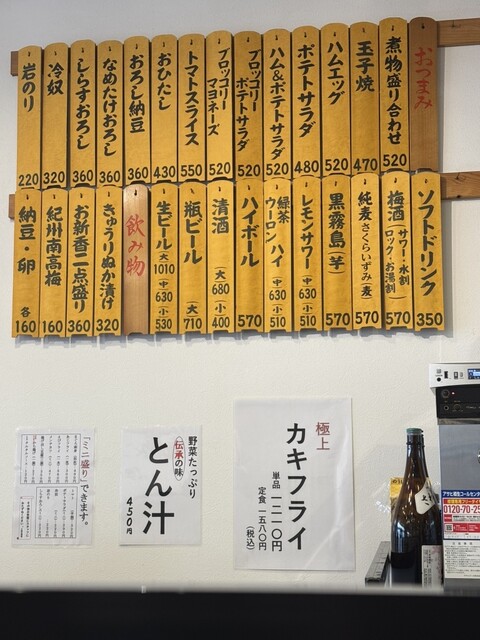 おつまみ
煮物盛り合わせ 520
玉子焼 470
ハムエッグ 520
ポテトサラダ 480
ハム&ポテトサラダ 520
ブロッコリーポテトサラダ 520
ブロッコリーマヨネーズ 520
トマトスライス 550
おひたし 430
おろし納豆 360
なめたけおろし 360
しらすおろし 360
冷奴 320
岩のり 220
ソフトドリンク 350
梅酒(サワー・水割 ロック・お湯割) 570
純麦さくらいずみ(麦) 570
黒霧島(芋) 570
レモンサワー 中630 小510
緑茶 ウーロン ハイ 中630 小510
ハイボール 570
清酒 大680 小400
瓶ビール 大710
生ビール 大1010 中630 小530
飲み物
きゅうりぬか漬け 320
お新香二点盛り 360
紀州南高梅 160
納豆・卵 各160
極上
カキフライ
単品 一二一〇円
定食 一五八〇円
(税込)
野菜たっぷり
伝承の味
とん汁
450円
「ミニ盛り」できます。
0120-70-25